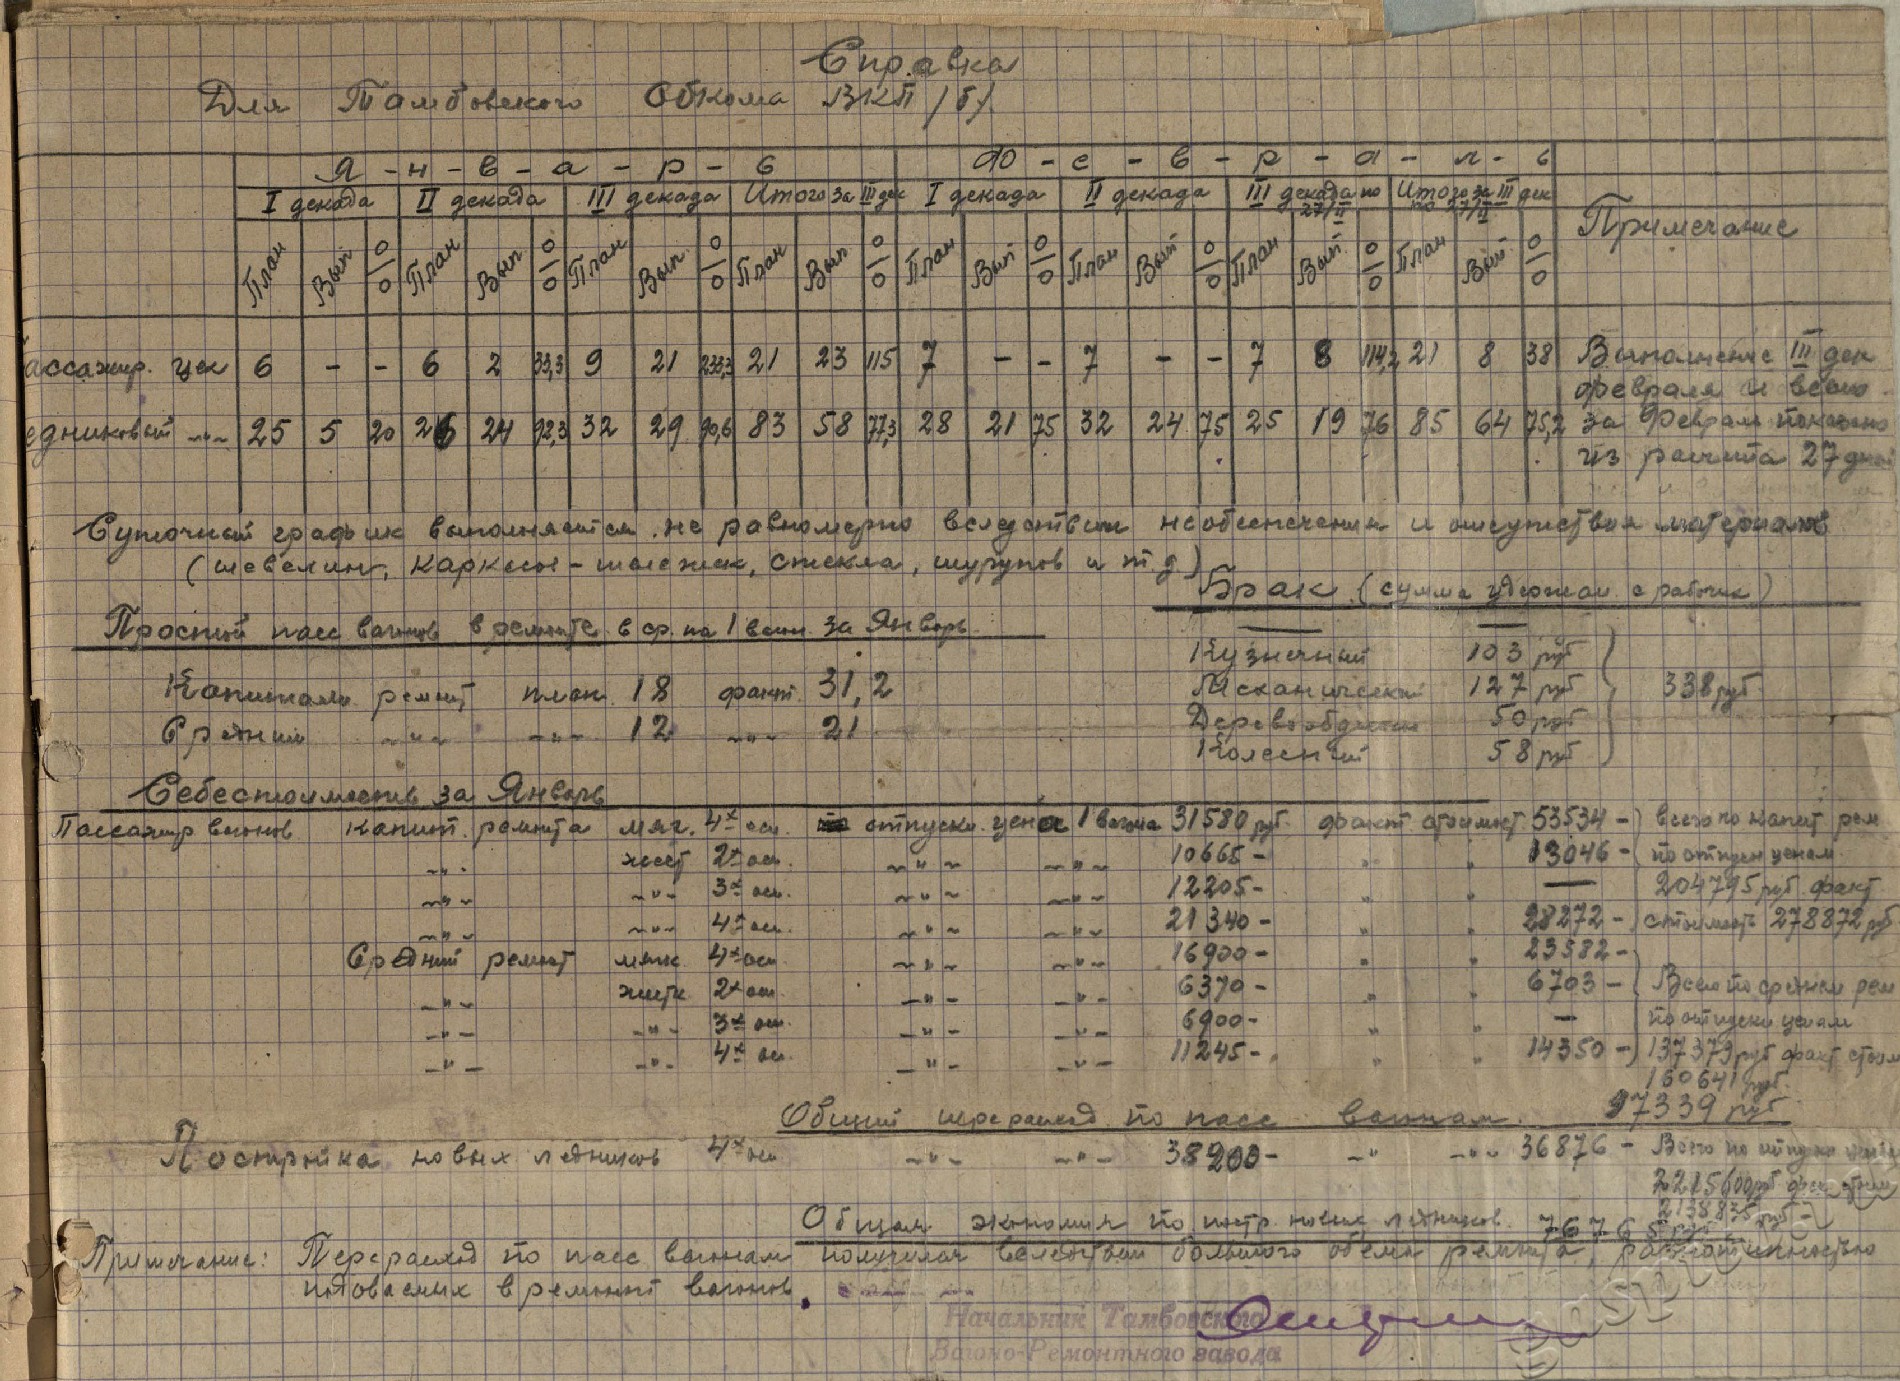 Справка
Для Тамбовского Обкома ВКП /б/
Я - н - в - а - р - ь Ф - е - в - р - а - л - ь
I декада II декада III декада Итого за III дек I декада II декада III декада по 27/II Итого за III дек по 27/II Примечание
План Вып 0/0 План Вып 0/0 План Вып. 0/0 План Вып. 0/0 План Вып 0/0 План Вып 0/0 План Вып. 0/0 План Вып 0/0
ассажир. цех 6 - - 6 2 33,3 9 21 233,3 21 23 115 7 - - 7 - - 7 8 114,2 21 8 38 Выполнение III дек
февраля и всего
едниковый -"- 25 5 20 26 24 92,3 32 29 90,6 83 58 77,3 28 21 75 32 24 75 25 19 76 85 64 75,2 за Февраль показано
из расчета 27 дней
Суточный график выполняется не равномерно вследствии необеспечения и отсутствия материалов
(шевелин, каркасн - , стекла, шурупов и т д)
Брак (сумма удержан с рабочих)
Простой пасс вагонов в ремонте в ср. на 1 ваг. за Январь
Кузнечный 103 руб
Капитальн ремонт план 18 факт 31,2 Механический 127 руб 338 руб
Средний -"- -"- 12 -"- 21 Деревообделочн 50 руб
Колесный 58 руб
Себестоимость за Январь
Пассажир вагонов капит. ремонта мяг. 4х ос. отпускн. цена 1 вагона 31580 руб. факт. стоимост 53534 - всего по капит рем
-"- жест 2х ос. -"- -"- 10665 - " " 13046 - по отпускн ценам
-"- -"- 3х ос. -"- -"- 12205 - " " — 204795 руб. факт
-"- -"- 4х ос. -"- -"- 21340 - " " 28272 - стоимость 278872 руб
Средний ремонт мягк 4х ос -"- -"- 16900 - " " 23582 -
-"- жестк 2х ос. -"- -"- 6370 - " " 6703 - Всего по среднем рем
-"- -"- 3х ос. -"- -"- 6900 - " " — по отпускн ценам
-"- -"- 4х ос. -"- -"- 11245 - " " 14350 - 137379 руб факт стоим
160641 руб.
Общий перерасход по пасс вагонам 97339 руб
Постройка новых ледников 4х ос -"- -"- 38200 - -"- -"- 36876 - Всего по отпускн ценам
2215600 руб факт стоим
2138835 руб
Общая экономия по постр. новых ледников 76765 руб
Примечание: Перерасход по пасс вагонам получился вследствии большого объема ремонта,
подаваемых в ремонт вагонов.
Начальник Тамбовского
Вагоно-Ремонтного завода